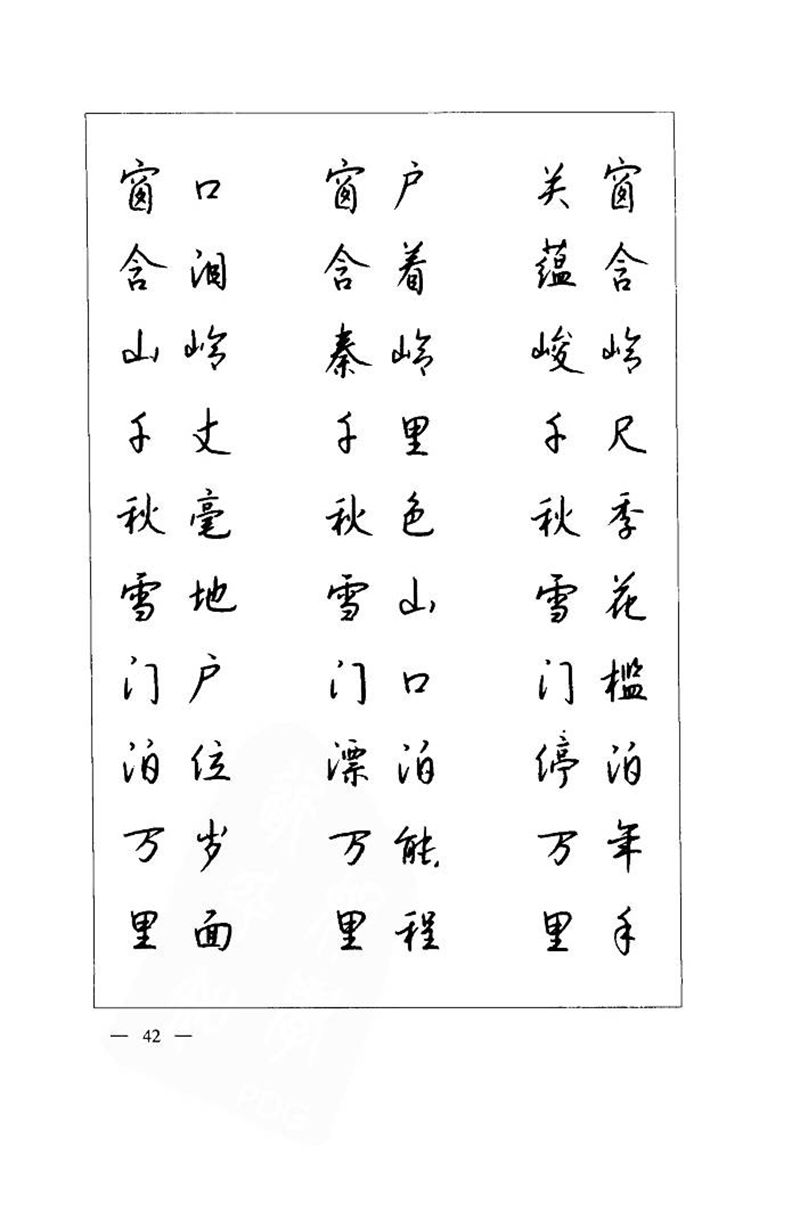 窗口 窗户 关窗
含泪 含着 蕴含
山岭 秦岭 峻岭
千丈 千里 千尺
秋毫 秋色 秋季
雪地 雪山 雪花
门户 门口 门槛
泊位 漂泊 停泊
万岁 万能 万年
里面 里程 里手
— 42 —
PDG